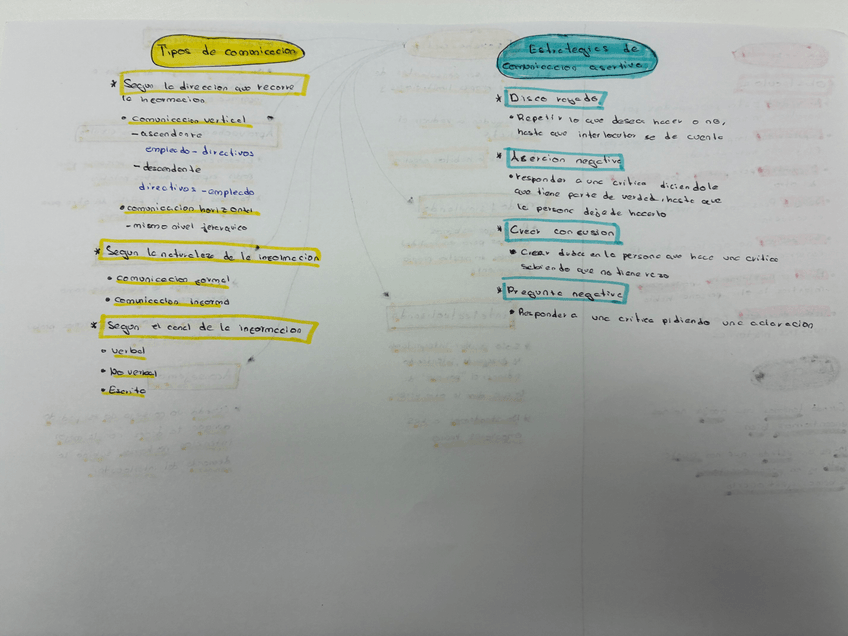 Tipos de comunicacion
* Segun la direccion que recorre
la informacion
• comunicacion vertical
- ascendente
empleado - directivos
- descendente
directivos - empleado
• comunicacion horizontal
- mismo nivel jerarquico
* Segun la naturaleza de la informacion
• comunicacion formal
• comunicacion informal
* Segun el canal de la informacion
• verbal
• No verbal
• Escrita
Estrategias de
comunicacion asertiva
* Disco rayado
• Repetir lo que desea hacer o no,
hasta que interlocutor se de cuenta
* Asercion negativa
• responder a una critica diciendole
que tiene parte de verdad, hasta que
la persona deje de hacerlo
* Crear confusion
• Crear duda en la persona que hace una critica
sabiendo que no tiene razo
* Pregunta negativa
• Responder a una critica pidiendo una aclaracion